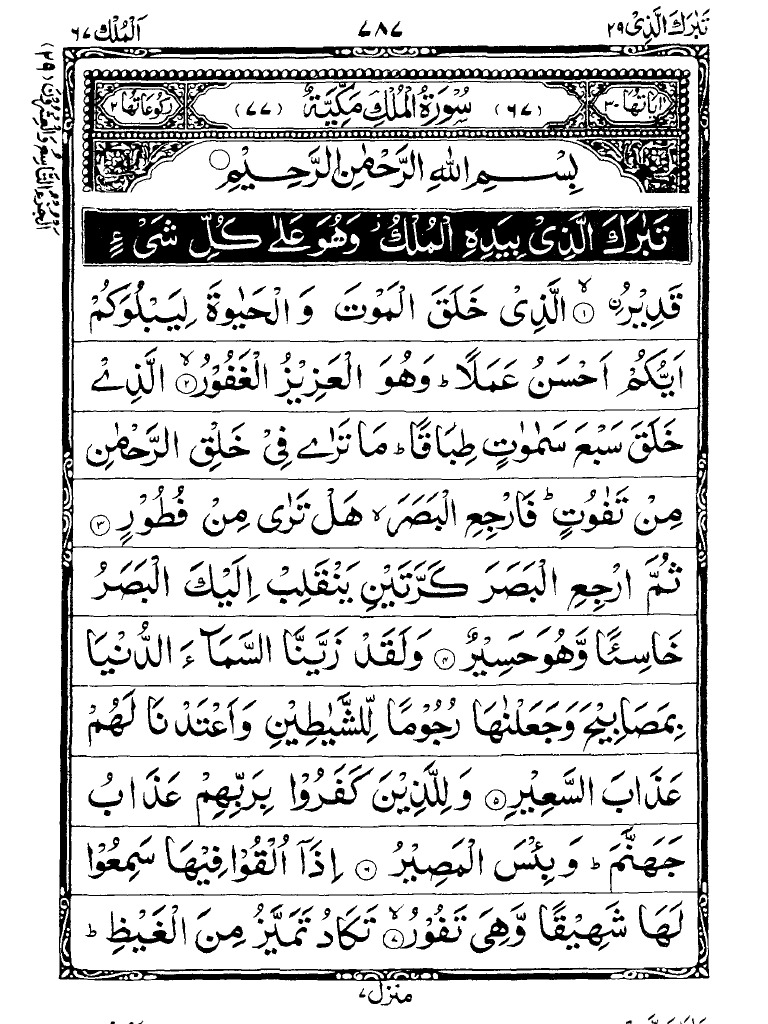 تَبٰرَكَ الَّذِیْ ۲۹
۷۸۷
اَلْمُلْك ۶۷
اٰیَاتُهَا ۳۰
(۶۷) سُوْرَةُ الْمُلْكِ مَكِّیَّةٌ (۷۷)
رُكُوْعَاتُهَا ۲
بِسْمِ اللهِ الرَّحْمٰنِ الرَّحِیْمِ
تَبٰرَكَ الَّذِیْ بِیَدِهِ الْمُلْكُ ز وَهُوَ عَلٰی كُلِّ شَیْءٍ
قَدِیْرُ ۨ ۙ۝۱ الَّذِیْ خَلَقَ الْمَوْتَ وَ الْحَیٰوةَ لِیَبْلُوَكُمْ
اَیُّكُمْ اَحْسَنُ عَمَلًا ؕ وَهُوَ الْعَزِیْزُ الْغَفُوْرُ ۙ۝۲ الَّذِیْ
خَلَقَ سَبْعَ سَمٰوٰتٍ طِبَاقًا ؕ مَا تَرٰی فِیْ خَلْقِ الرَّحْمٰنِ
مِنْ تَفٰوُتٍ ؕ فَارْجِعِ الْبَصَرَ ۙ هَلْ تَرٰی مِنْ فُطُوْرٍ ۝۳
ثُمَّ ارْجِعِ الْبَصَرَ كَرَّتَیْنِ یَنْقَلِبْ اِلَیْكَ الْبَصَرُ
خَاسِئًا وَّهُوَ حَسِیْرٌ ۝۴ وَلَقَدْ زَیَّنَّا السَّمَآءَ الدُّنْیَا
بِمَصَابِیْحَ وَجَعَلْنٰهَا رُجُوْمًا لِّلشَّیٰطِیْنِ وَاَعْتَدْنَا لَهُمْ
عَذَابَ السَّعِیْرِ ۝۵ وَلِلَّذِیْنَ كَفَرُوْا بِرَبِّهِمْ عَذَابُ
جَهَنَّمَ ؕ وَبِئْسَ الْمَصِیْرُ ۝۶ اِذَاۤ اُلْقُوْا فِیْهَا سَمِعُوْا
لَهَا شَهِیْقًا وَّهِیَ تَفُوْرُ ۙ۝۷ تَكَادُ تَمَیَّزُ مِنَ الْغَیْظِ ؕ
منزل ۷
الجزء التاسع والعشرون (۲۹)